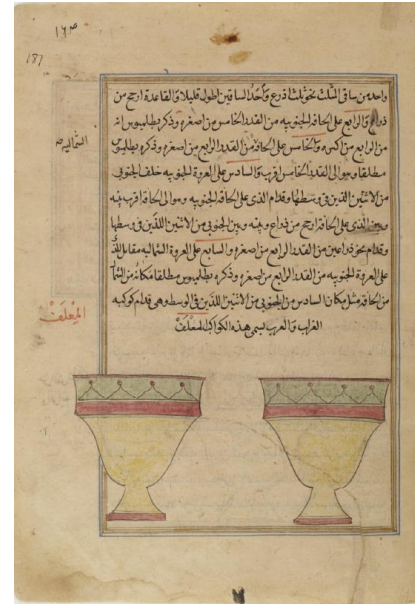 ١٦٣
187
واحد من ساقى المثلث نحو ثلث اذرع واحد الساقين اطول قليلا والقاعدة ارجح من
ذراع والرابع على الحافة الجنوبيه من القدر الخامس من اصغره وذكر بطلميوس انه
من الرابع من اكبره والخامس على الحافة من القدر الرابع من اصغره وذكره بطلميوس
مطلقا وهو الى القدر الخامس اقرب والسادس على العروة الجنوبيه خلف الجنوبى
من الاثنين اللذين فى وسطها وقدام الذى على الحافه الجنوبيه وهو الى الحافة اقرب بينه
وبين الذى على الحافة ارجح من ذراع وبينه وبين الجنوبى من الاثنين اللذين فى وسطها
وقدام نحو ذراعين من القدر الرابع من اصغره والسابع على العروة الشماليه مقابل للذى
على العروة الجنوبيه من القدر الرابع من اصغره وذكره بطلميوس مطلقا مكانه من الشمالى
من الحافة مثل مكان السادس من الجنوبى من الاثنين اللذين فى الوسط وهى قدام كوكبه
الغراب والعرب يسمى هذه الكواكب المعلف
المعلف